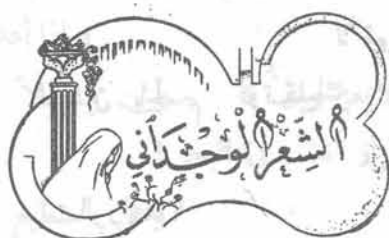 الشِعْرُ الوِجْدَانِي